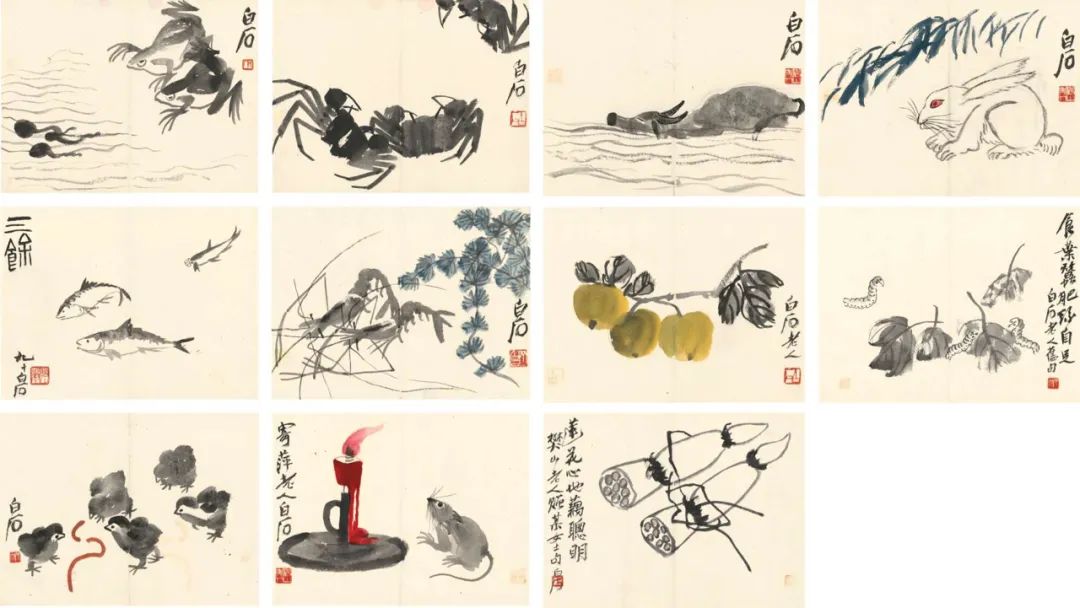 白石
白石
白石
白石
三餘
九十白石
白石
白石老人
食葉蠶肥絲自足
白石老人舊句
白石
寄萍老人白石
蓮花心地藕聰明
樊山老人贈某女士句白石